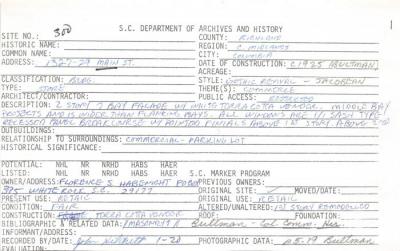 300 S.C. DEPARTMENT OF ARCHIVES AND HISTORY
SITE NO.: COUNTY: RICHLAND
HISTORIC NAME: REGION: C. MIDLANDS
COMMON NAME: CITY: COLUMBIA
ADDRESS: 1527-29 MAIN ST. DATE OF CONSTRUCTION: C1925 (BULLMAN)
ACREAGE:
CLASSIFICATION: BLDG. STYLE(S): GOTHIC REVIVAL - JACOBEAN
TYPE: STORE THEME(S): COMMERCE
ARCHITECT/CONTRACTOR: PUBLIC ACCESS: RESTRICTED
DESCRIPTION: 2 STORY 3 BAY FACADE W/ WHITE TERRA COTTA VENEER. MIDDLE BAY
PROJECTS AND IS WIDER THAN FLANKING BAYS. ALL WINDOWS ARE 1/1 SASH TYPE
RECESSED PANEL BELTCOURSE W/ POINTED FINIALS ABOVE 1ST STORY. ABOVE 2ND
OUTBUILDINGS:
RELATIONSHIP TO SURROUNDINGS: COMMERCIAL - PARKING LOT
HISTORICAL SIGNIFICANCE:
POTENTIAL: NHL NR NRHD HABS HAER
LISTED: NHL NR NRHD HABS HAER S.C. MARKER PROGRAM
OWNER/ADDRESS: FLORENCE S. HABENICHT PREVIOUS OWNERS:
WHITE ROCK S.C. 29177 ORIGINAL SITE: MOVED/DATE:
PRESENT USE: RETAIL ORIGINAL USE: RETAIL
CONDITION: FAIR ALTERED/UNALTERED: 1ST STORY REMODELED
CONSTRUCTION: TERRA COTTA VENEER ROOF: FOUNDATION:
BIBLIOGRAPHIC & RELATED DATA: Bullman - Col. Comm. Hist.
RECORDED BY/DATE: 1-20 PHOTOGRAPHIC DATA: 5-19 Bullman